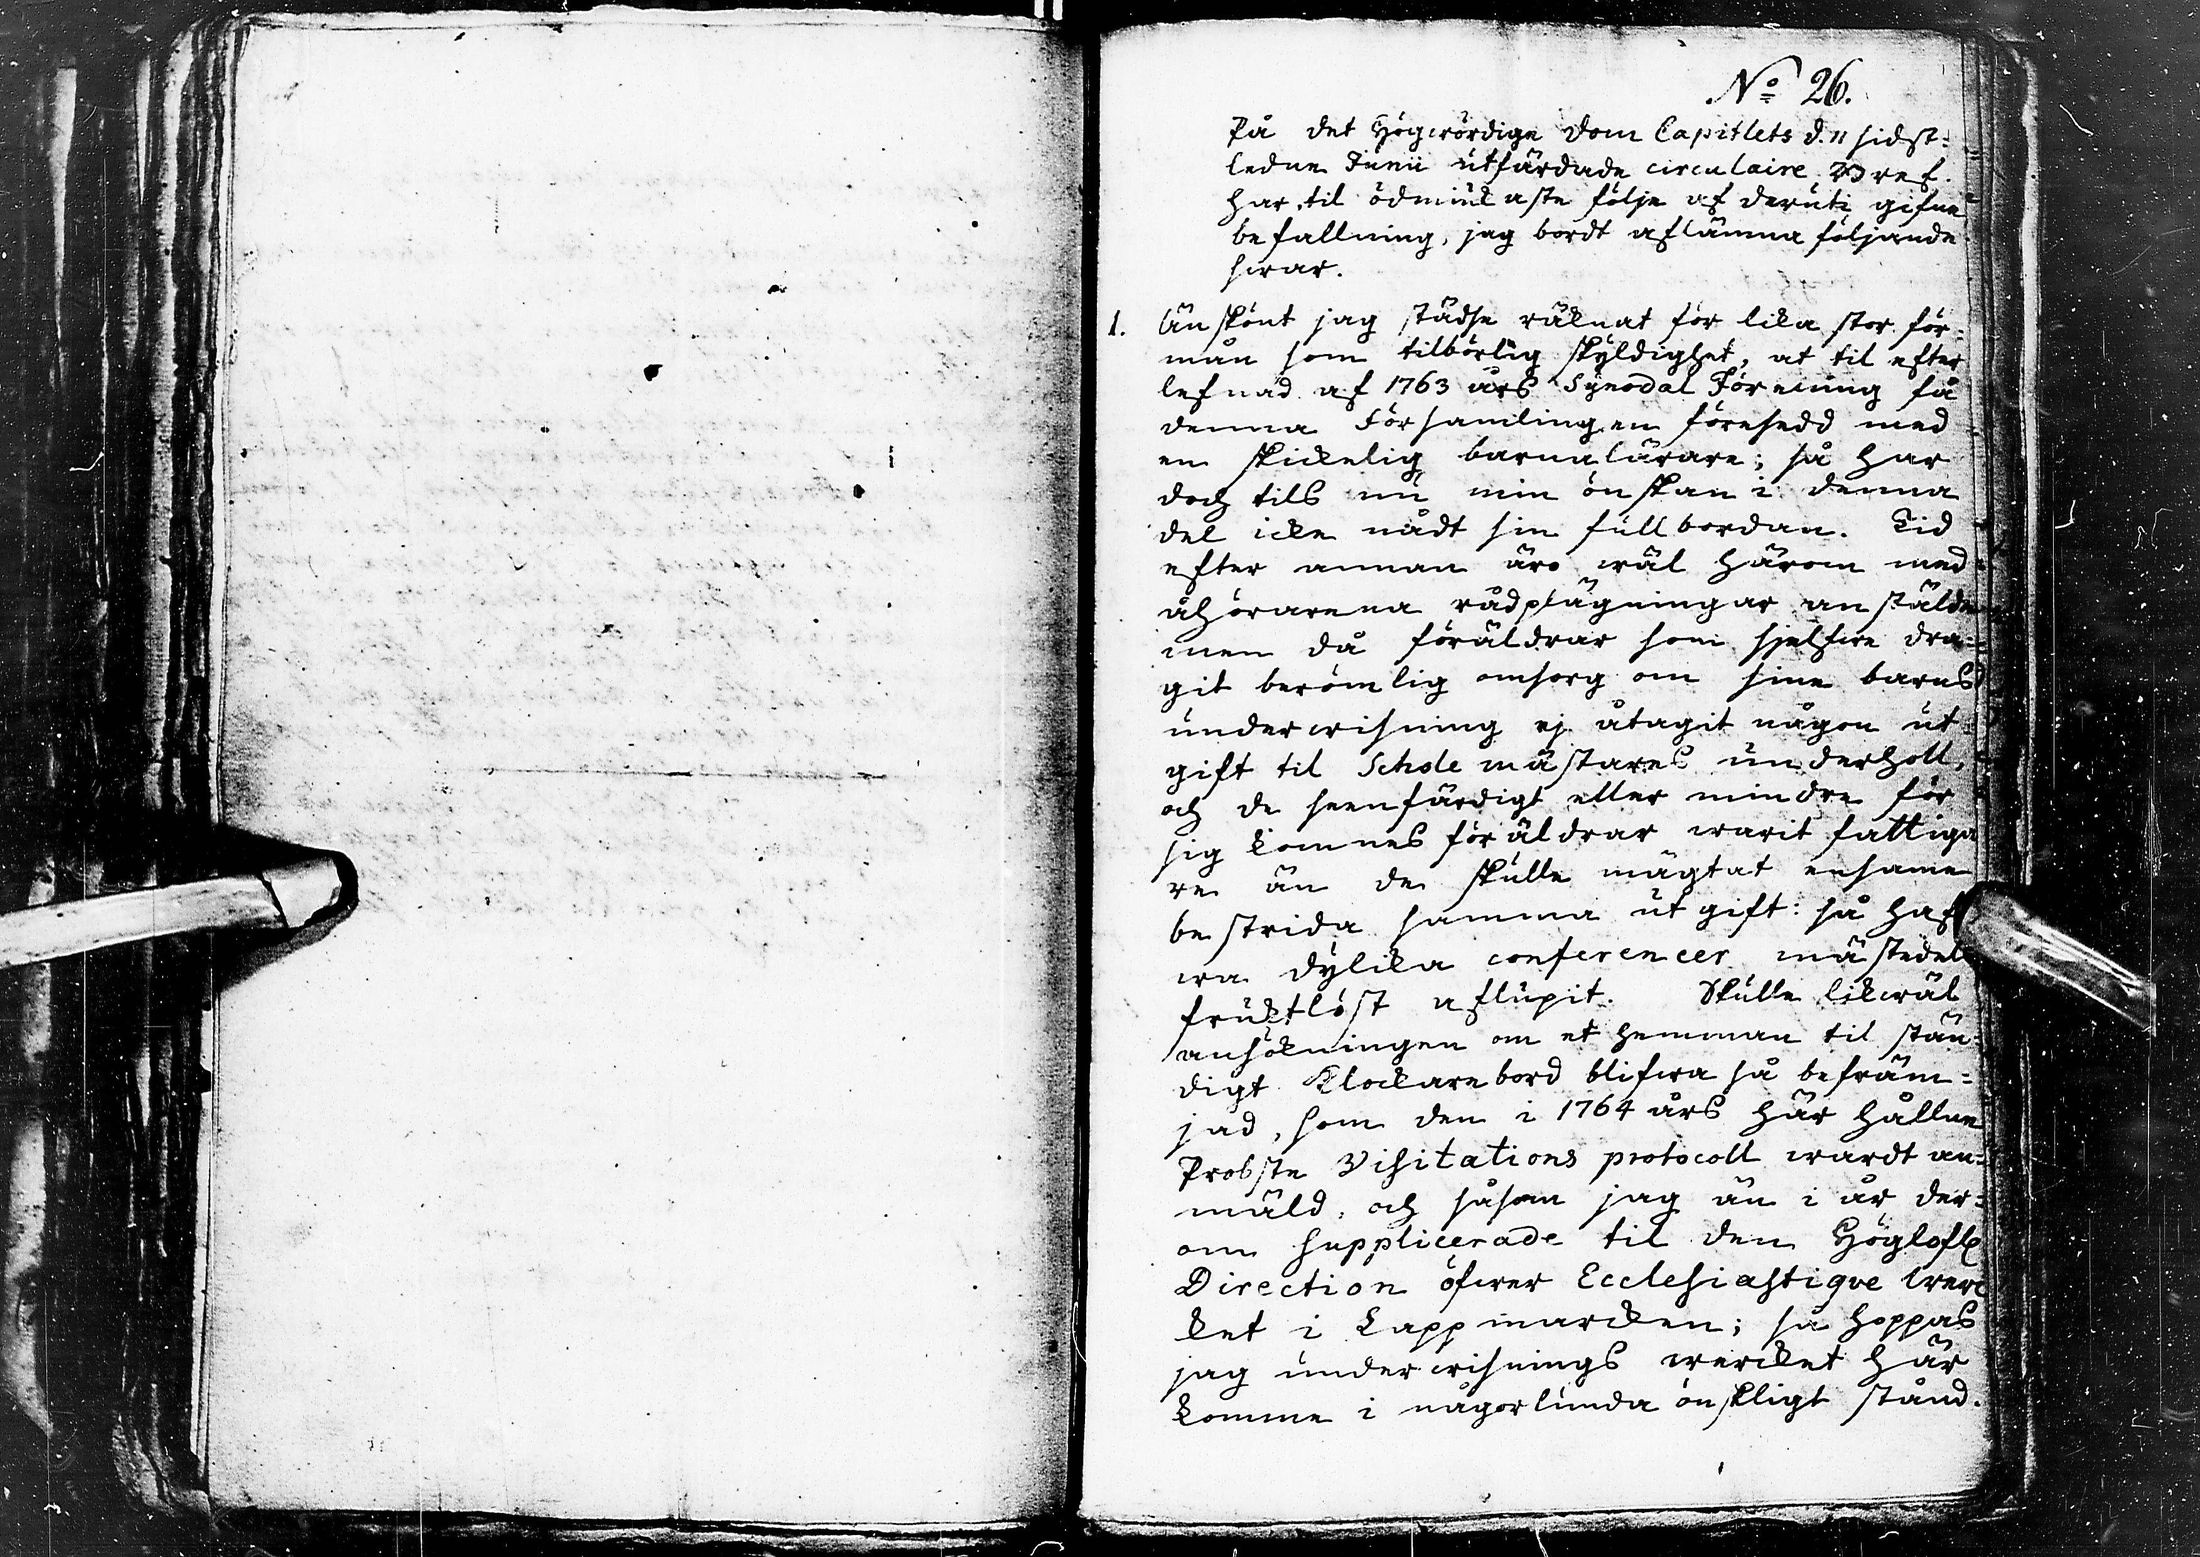 No 26.
På det Högwördige Dom Capitlets d. 11 sidst=
ledne Junii utfärdade circulaire Bref.
har, til ödmiukaste följe af deruti gifne
befallning, jag bordt aflämna följande
swar.
1. Änskönt jag städse räknat för lika stor för=
mån som tilbörlig skyldighet, at til efter
lefnad af 1763 års Synodal Förening få
denna Församlingen försedd med
en skickelig barnalärare; så har
doch tils nu min önskan i denna
del icke nådt sin fullbordan. Tid
efter annan äro wäl härom med
åhörarena rådplägningar anstälde
men då föräldrar som sjelfwe dra=
git berömlig omsorg om sine barns
underwisning ej åtagit någon ut=
gift til Scholemästares underholl,
och de seenfärdigt eller mindre för
sig komnes föräldrar warit fattiga
re än de skulle mägtat ensame
bestrida samma utgift: så haf
wa dylika conferencer mästedels
fruktlöst aflupit. Skulle likwäl
ansökningen om et hemman til stän=
digt Klockarebord blifwa så befräm=
jad, som den i 1764 års här hållne
Probste Visitations protocoll wardt an=
mäld, och såsom jag än i år der=
om supplicerade til den Höglofl
Direction öfwer Ecclesiastique werc
ket i Lappmarcken; så hoppas
jag underwisnings wercket här
komme i någorlunda önskligt stånd.